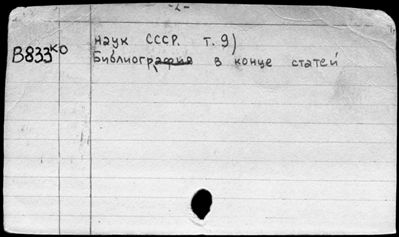 -2-
наук СССР. т. 9)
В833ко
Библиогр в конце статей